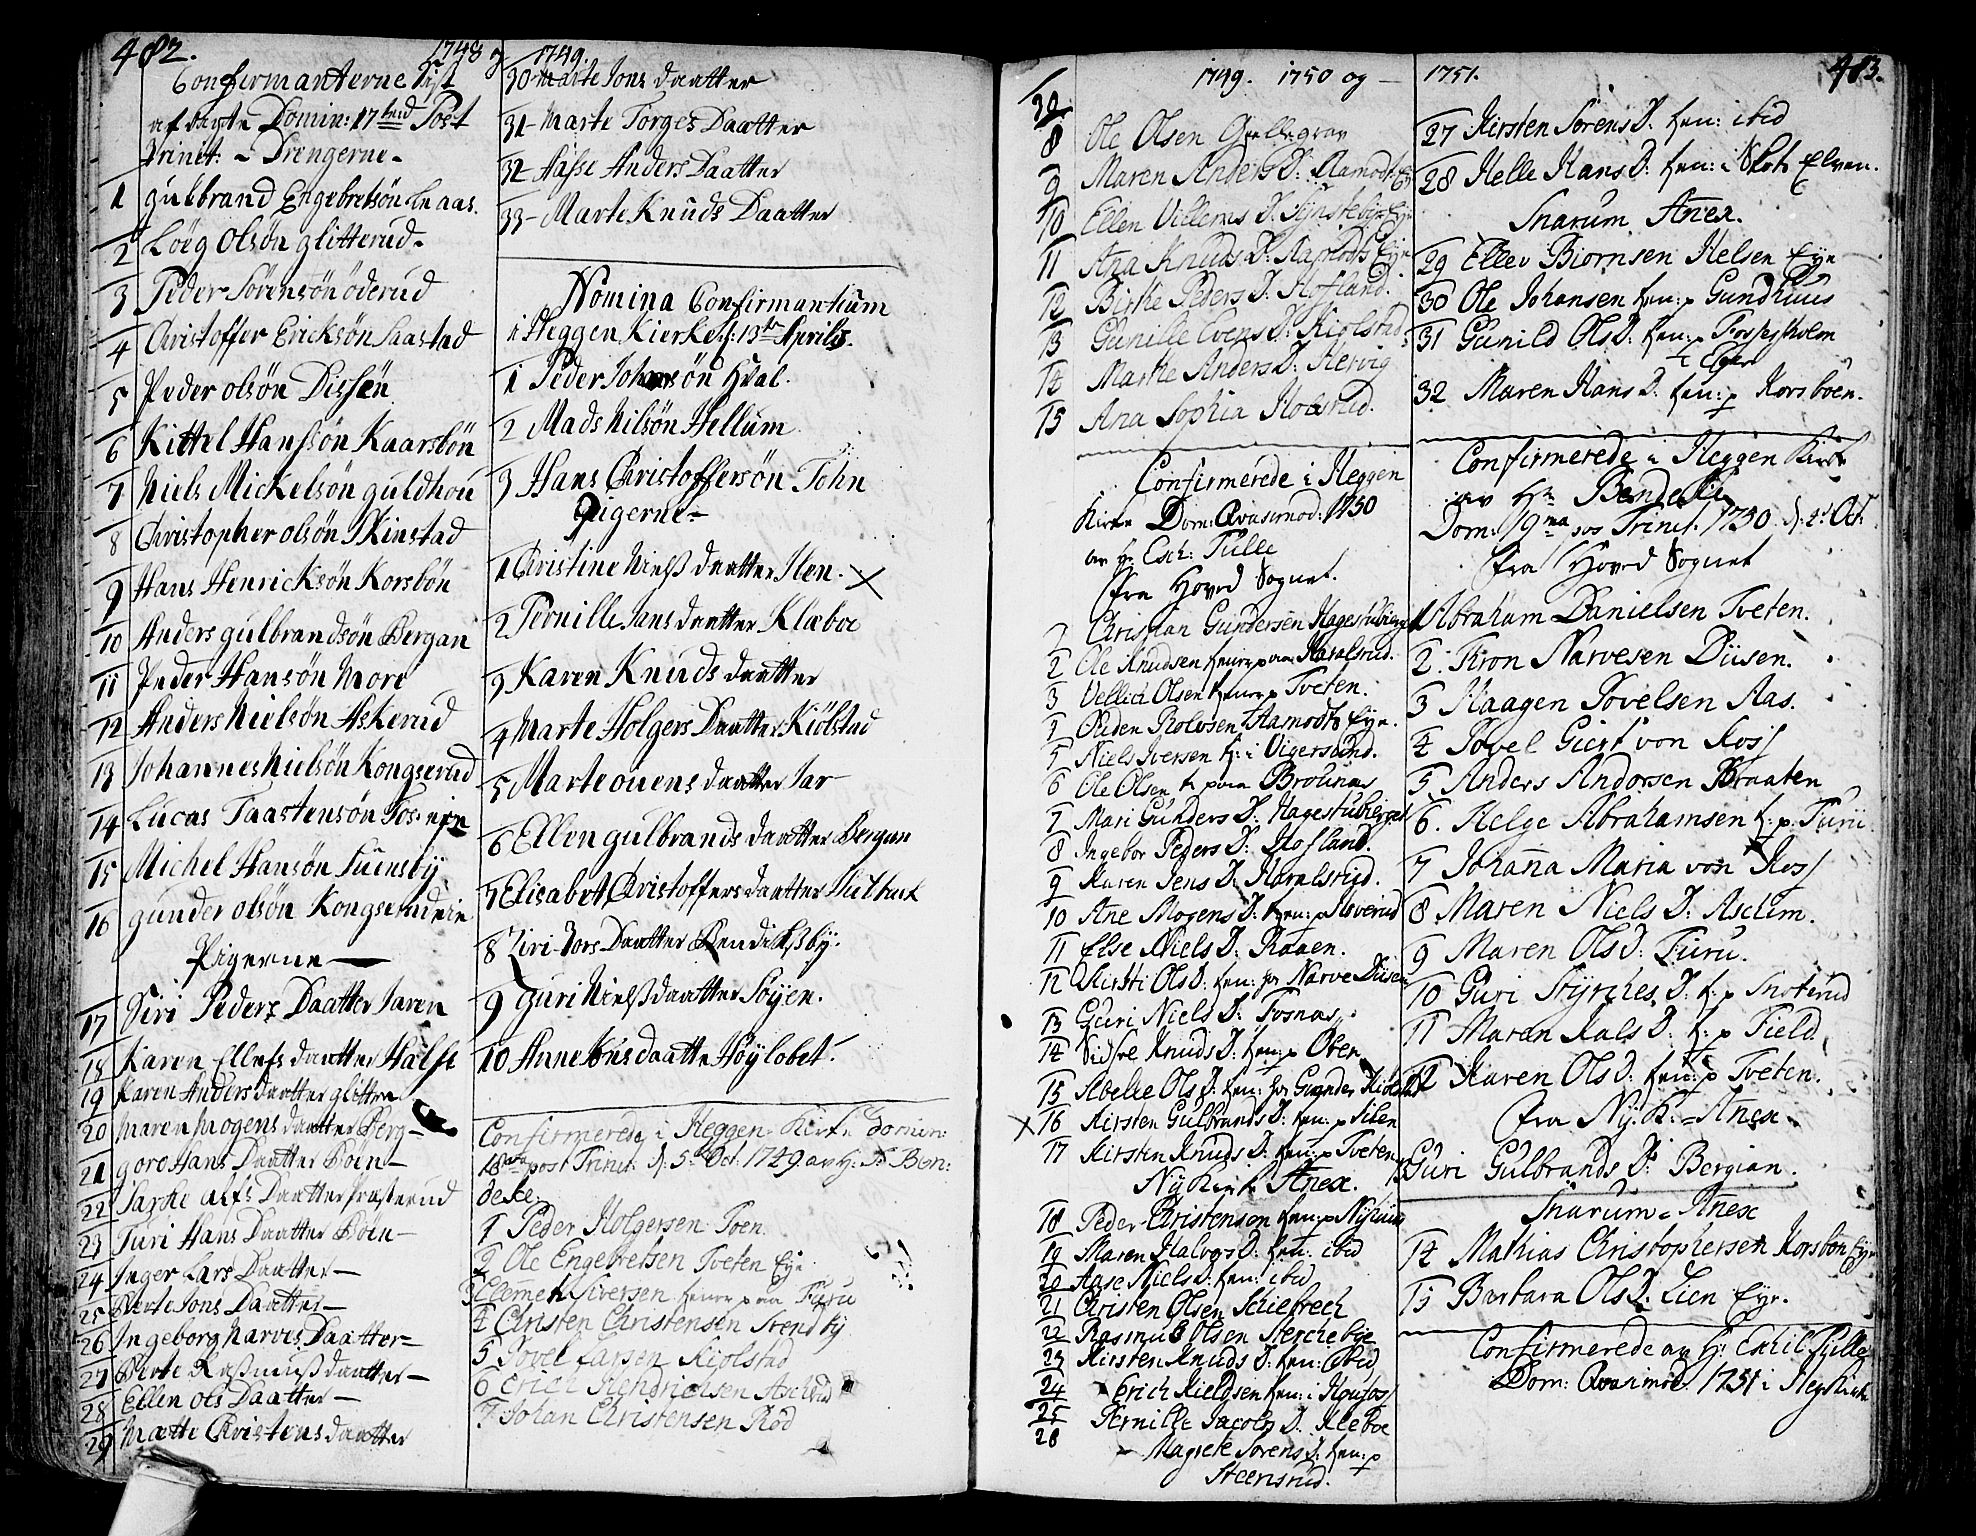 482. 1748 og 1749.
Confirmanterne sist
af sagte Domin: 17tend Post
Trinit: - Drengerne -
1 gulbrand Engebretsön Le aas.
2 Loëg Olsön glitterud.
3 Peder Sörensön öderud
4 Christoffer Ericksön Saastad
5 Peder olsön Dissen
6 Kittel Hanssön Kaarsbön
7 Niels Mickelsön guldhou
8 Christopher olsön Skinstad
9 Hans Henricksön Korsbön
10 Anders gulbrandsön Bergan
11 Peder Hansön More
12 Anders Nielsön Askerud
13 Johannes Nielsön Kongserud
14 Lucas Taastensön
15 Michel Hansön Suensby
16 gunder olsön Kongserudeie
Pigerne —
17 Siri Peders Daatter Jaren
18 Karen Ellefs daatter Halft
19 Karen Anders daatter glitter
20 maren mogens daatter Berg —
21 goro Hans Daatter Boen —
22 alfs Daatter
23 Turi Hans Daatter Boen —
24 Inger Lars Daatter —
25 Berte Jons Daatter —
26 Ingeborg Narves Daatter —
27 Berte Rasmuss daatter —
28 Ellen ols Daatter —
29 Mætte Christens daatter
30 Marte Jons daatter
31 - Marte Torges Daatter
32 - Aasse Anders Daatter
33 - Marte Knuds Daatter
Nomina Confirmantium
i Heggen Kierke d: 13de Aprilis.
1 Peder Johansön Hval.
2 Mads Nilsön Hellum
3 Hans Christoffersön Tohn
Pigerne -
1 Christine Nielss daatter Hen. X
2 Pernille Jans daatter Klæboe
3 Karen Knuds daatter
4 Marte Holgers Daatter Kiölstad
5 Marte ouens daatter Jar —
6 Ellen gulbrands daatter Bergan
7 Elisabet Christoffers daatter
8 Siri Jors Daatter Bendikssby.
9 guri Nielss daatter Soyen.
10 Anne Jöns daatte Höylobet.
Confirmerede i Heggen Kirke domin:
18de post Trinit: d: 5. Oct: 1749 av H: Ben:
deke.
1 Peder Holgersen Toen
2 Ole Engebretsen Tveten Eye
3 Clemet Siversen tener paa Furu
4 Christen Christensen Svendby
5 Tovel Larsen Kiolstad
6 Erich Hendrichsen Askerud
7 Johan Christensen Röd
1749. 1750 og — 1751. 483.
8 Ole Olsen Grellegrav
9 Maren Anders D: Aamodt Ey
10 Ellen Villems D:
11 Ana Knuds D: Aamodts Eye
12 Birthe Peders D: Hofland.
13 Gunille Evens D: Kiolstad
14 Marthe Anders D: Hervig
15 Ana Sophia Holstad.
Confirmerede i Heggen
Kirke Dom: Qvasimod: 1750
av Hr. Esch: Tulle
fra Hoved Sognet.
1 Christian Gundersen Hagestubierget
2 Ole Knudsen tener paa Haralsrud.
3 Vellich Olsen tener p Tveten.
4 Ouden Rolvsen Aamodts Eye.
5 Niels Iversen t: i Vigersund.
6 Ole Olsen t. paa Brolinas
7 Mari Gunders D: Hagestubierget
8 Ingebor Peders D: Hofland.
9 Karen Jens D: Haralsrud.
10 Ane Mogens D: ten: p Hoverud
11 Else Niels D: Raaen.
12 Kirsti Ols D: ten: hos Narve Diisen
13 Guri Niels D: Fosnas.
14 Sidsel Knuds D: ten: p Oben
15 Abelke Ols D: ten: hos Gunder Kiolstad
X 16 Kirsten Gulbrands D: ten: p Hilen
17 Kirsten Knuds D: ten: p Tveten
Nykirk Anex.
18 Peder Christensen ten: p
19 Maren Halvors D: ten: ibid
20 Aase Niels D: ten: ibid
21 Christen Olsen Schiebrech
22 Rasmus Olsen Sterchebye
23 Kirsten Knuds D: ten: ibid
24 Erich Kieldsen ten: i
25 Pernille Jacobs D: Kleboe
26 Magrete Sorens D: ten: p
Steensrud.
27 Kirsten Sorens D: ten: ibid
28 Helle Hans D: ten: i Slots Elven.
Snarum Anex.
29 Ellev Biornsen Helsen Eye
30 Ole Johansen ten: p Gundhuus
31 Gunild Ols D: ten: p Fossesholm
i Eger
32 Maren Hans D: ten: p Korsboen.
Confirmerede i Heggen Kirke
av Hr. Bendeke
Dom: 19ma pos Trinit. 1750. d: 4. Oct.
fra Hoved Sognet
1 Abraham Danielsen Tveten.
2. Tron Narvesen Diisen.
3 Haagen Tovelsen Aas.
4 Tovel Giert von Koss
5 Anders Andorsen Braaten
6. Helge Abrahamsen t: p: Furu
7 Johanna Maria von Koss
8 Maren Niels D: Asclim.
9 Maren Ols D: Furu.
10 Guri Styrches D: t: p Snoterud
11 Maren Kals D: t: p Field
12 Karen Ols D: ten: p Tveten.
fra Ny: K: Anex.
13 Guri Gulbrands D: Bergian.
Snarum Anex
14 Mathias Christophersen Korsbon Eye
15 Barbara Ols D: Lien Eye.
Confirmerede av Hr. Eschil Tulle
Dom: Qvasimod: 1751 i Heg: Kirke